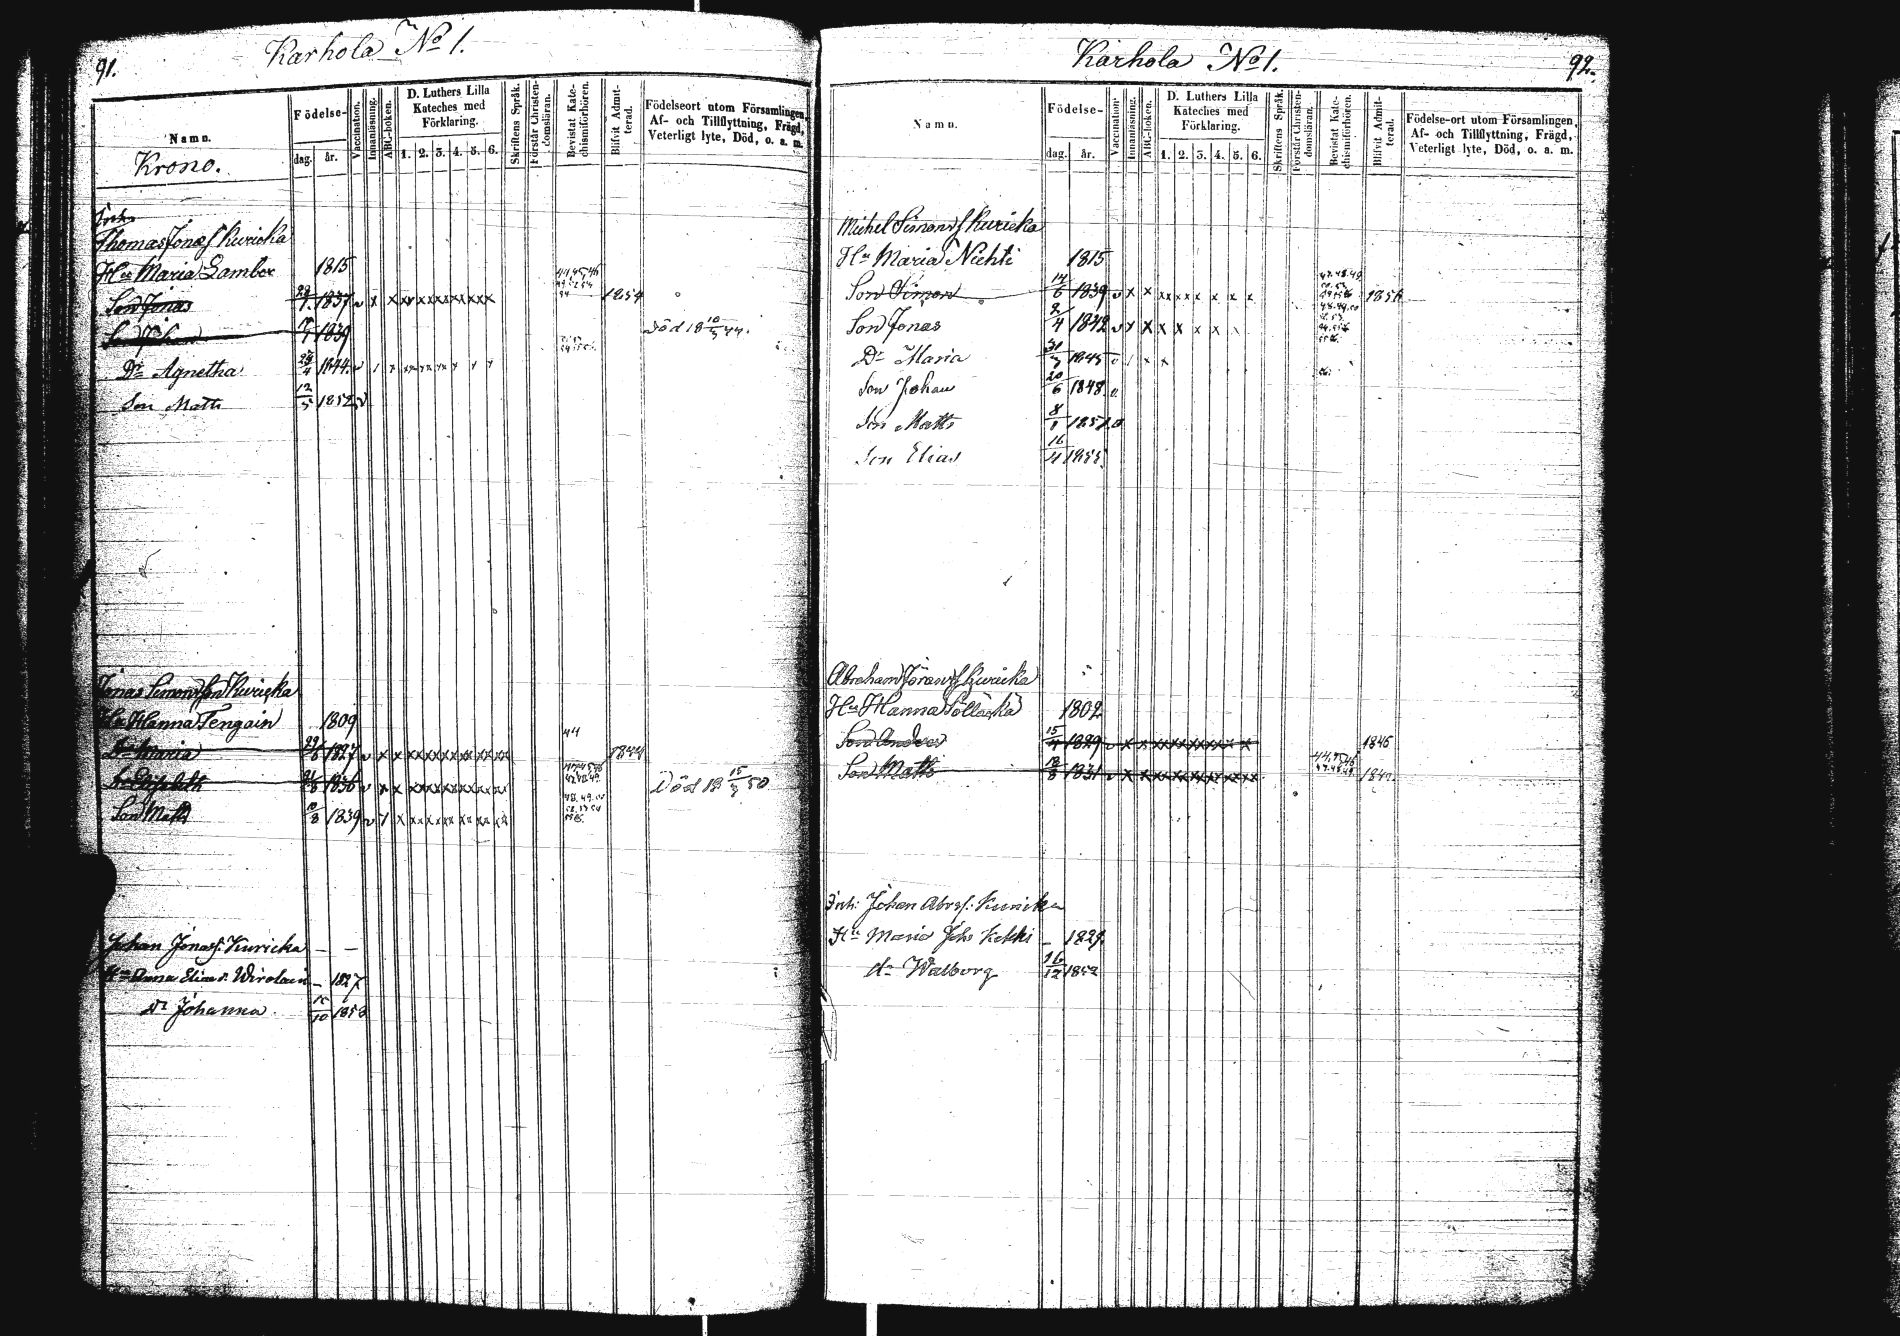 91.
Karhola No 1.
Namn.
Födelse-
dag. år.
Vaccination.
Innanläsning.
ABC-boken.
D. Luthers Lilla
Kateches med
Förklaring.
1. 2. 3. 4. 5. 6.
Skriftens Språk.
Förstår Christen-
domsläran.
Bevistat Kate-
chismiförhören.
Blifvit Admit-
terad.
Födelseort utom Församlingen,
Af- och Tillflyttning, Frägd,
Veterligt lyte, Död, o. a. m.
Krono.
Thomas Jonas Kuricka
Hu Maria Lambor 1815
Son Jonas 1837 1854
Son Johan 1839 Död 18 10/5 44.
Dr Agnetha 24/4 1844
Son Matts 12/5 1852
Jonas Simonsson Kuricka
Hu Hanna Tengain 1809
44
Dr Maria 1827 1844
Dr Elisabeth 1836 Död 18 15/3 50
Son Matts 1839
Johan Jonass: Kuricka
Hu Anna Eliasd: Wirolain 1827
Dr Johanna 1853
Karhola No 1.
92.
Namn.
Födelse-
dag. år.
Vaccination.
Innanläsning.
ABC-boken.
D. Luthers Lilla
Kateches med
Förklaring.
1. 2. 3. 4. 5. 6.
Skriftens Språk.
Förstår Christen-
domsläran.
Bevistat Kate-
chismiförhören.
Blifvit Admit-
terad.
Födelse-ort utom Församlingen,
Af- och Tillflyttning, Frägd,
Veterligt lyte, Död, o. a. m.
Michel Simons Kuricka
Hu Maria Niehti 1815
Son Simon 14/6 1839 1856
Son Jonas 2/4 1842
Dr Maria 31/3 1845
Son Johan 20/6 1848
Son Matts 8/1 1851
Son Elias 16/4 1855
Abraham Jörans Kuricka
Hu Hanna Pölläskä 1802
Son Anders 15/4 1829 1846
Son Matts 1831
Johan Abrs: Kuricka
Hu Maria Johs Kekki 1829
dr Walborg 16/12 1852